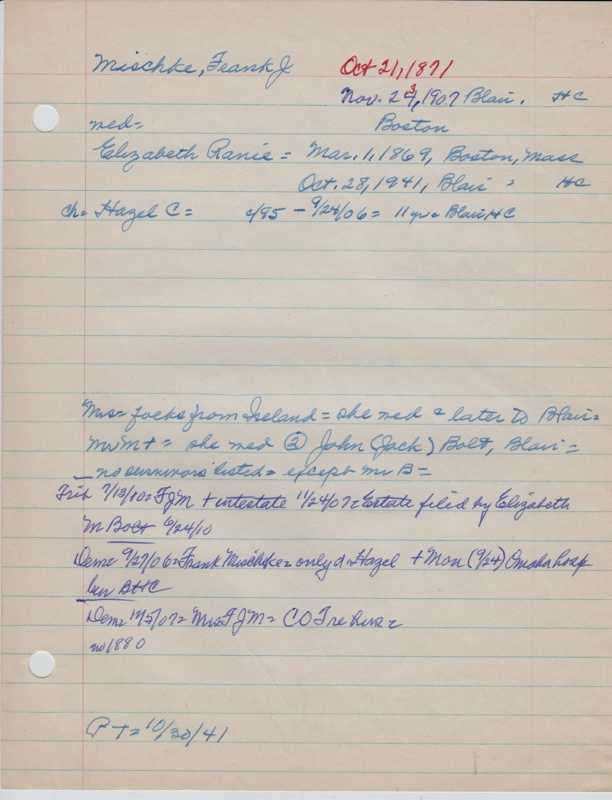 Mischke, Frank J Oct 21, 1871
Nov. 23, 1907 Blair. HC
med= Boston
Elizabeth Ranie = Mar. 1, 1869, Boston, Mass
Oct. 28, 1941, Blair = HC
ch= Hazel C = c/95 - 9/24/06 = 11 yr = Blair HC
Mrs= folks from Ireland = she med & later to Blair =
Mr M + = she med ② John (Jack) Bolt, Blair =
no survivors listed = except Mr B =
Trib 7/13/10 = FJM + intestate 11/24/07 = Estate filed by Elizabeth
M Bolt 6/24/10
Dem= 9/27/06 = Frank Mischke = only d = Hazel + Mon (9/24) Omaha hosp
bur B HC
Dem= 12/5/07 = Mrs FJM = CO
no 1880
P T = 10/30/41